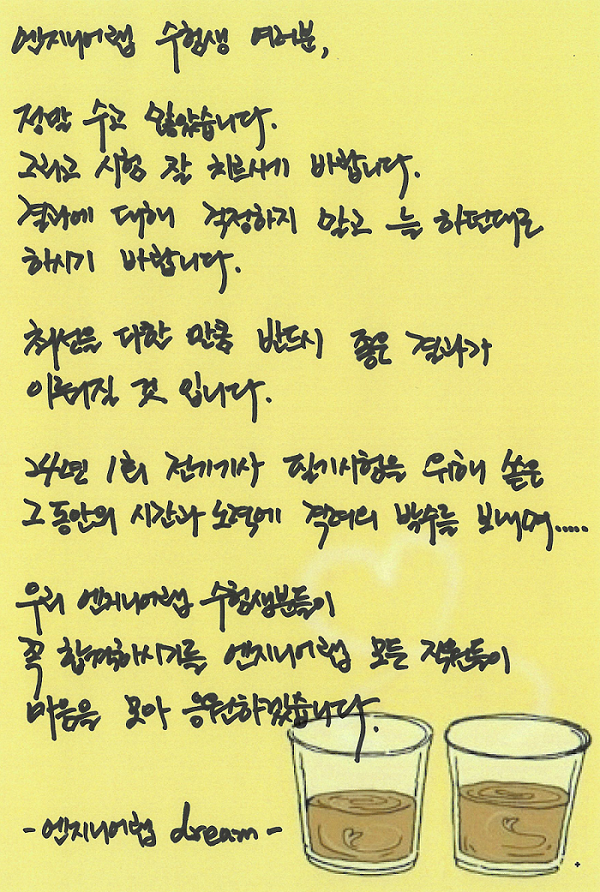 엔지니어랩 수험생 여러분,
정말 수고 많았습니다.
그리고 시험 잘 치르시기 바랍니다.
결과에 대해 걱정하지 말고 늘 하던대로
하시기 바랍니다.
최선을 다한 만큼 반드시 좋은 결과가
이뤄질 것 입니다.
24년 1회 전기기사 필기시험을 위해 쏟은
그동안의 시간과 노력에 격려의 박수를 보내며.....
우리 엔지니어랩 수험생분들이
꼭 합격하시기를 엔지니어랩 모든 직원들이
마음을 모아 응원하겠습니다.
- 엔지니어랩 dream -